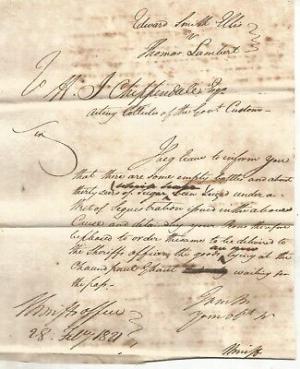 Edward Smith Ellis
v
Thomas Lambert
H. J. Chippindale Esqr
acting Collector of the Govt Customs
Sir
I beg leave to inform you
that there are some empty bottles and about
thirty seers of Sugar been seized under a
Writ of Sequestration issued in the above
Cause and
be pleased to order the same to be delivered to
the Sheriffs officers the goods lying at the
Ghaut waiting for
the pass.
I am Sir
Your Obt St
Sheriffs office
28 Feby 1821
Sheriff